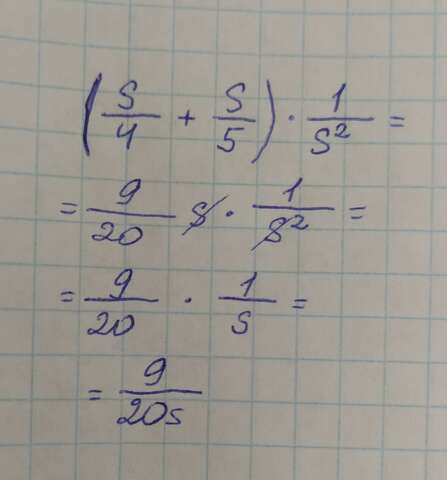 (s/4 + s/5) · 1/s² =
= 9/20 s · 1/s² =
= 9/20 · 1/s =
= 9/20s